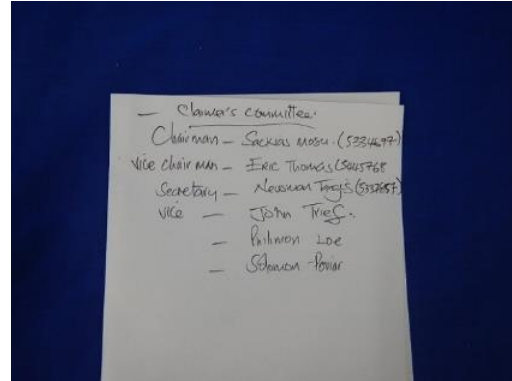 — Claimer's committee.
Chairman — Sackias Mosu. (5334697)
vice chair man — Eric Thomas (5445768
Secretary — Newman
vice — John Trief.
— Philimon Loe
— Solomon